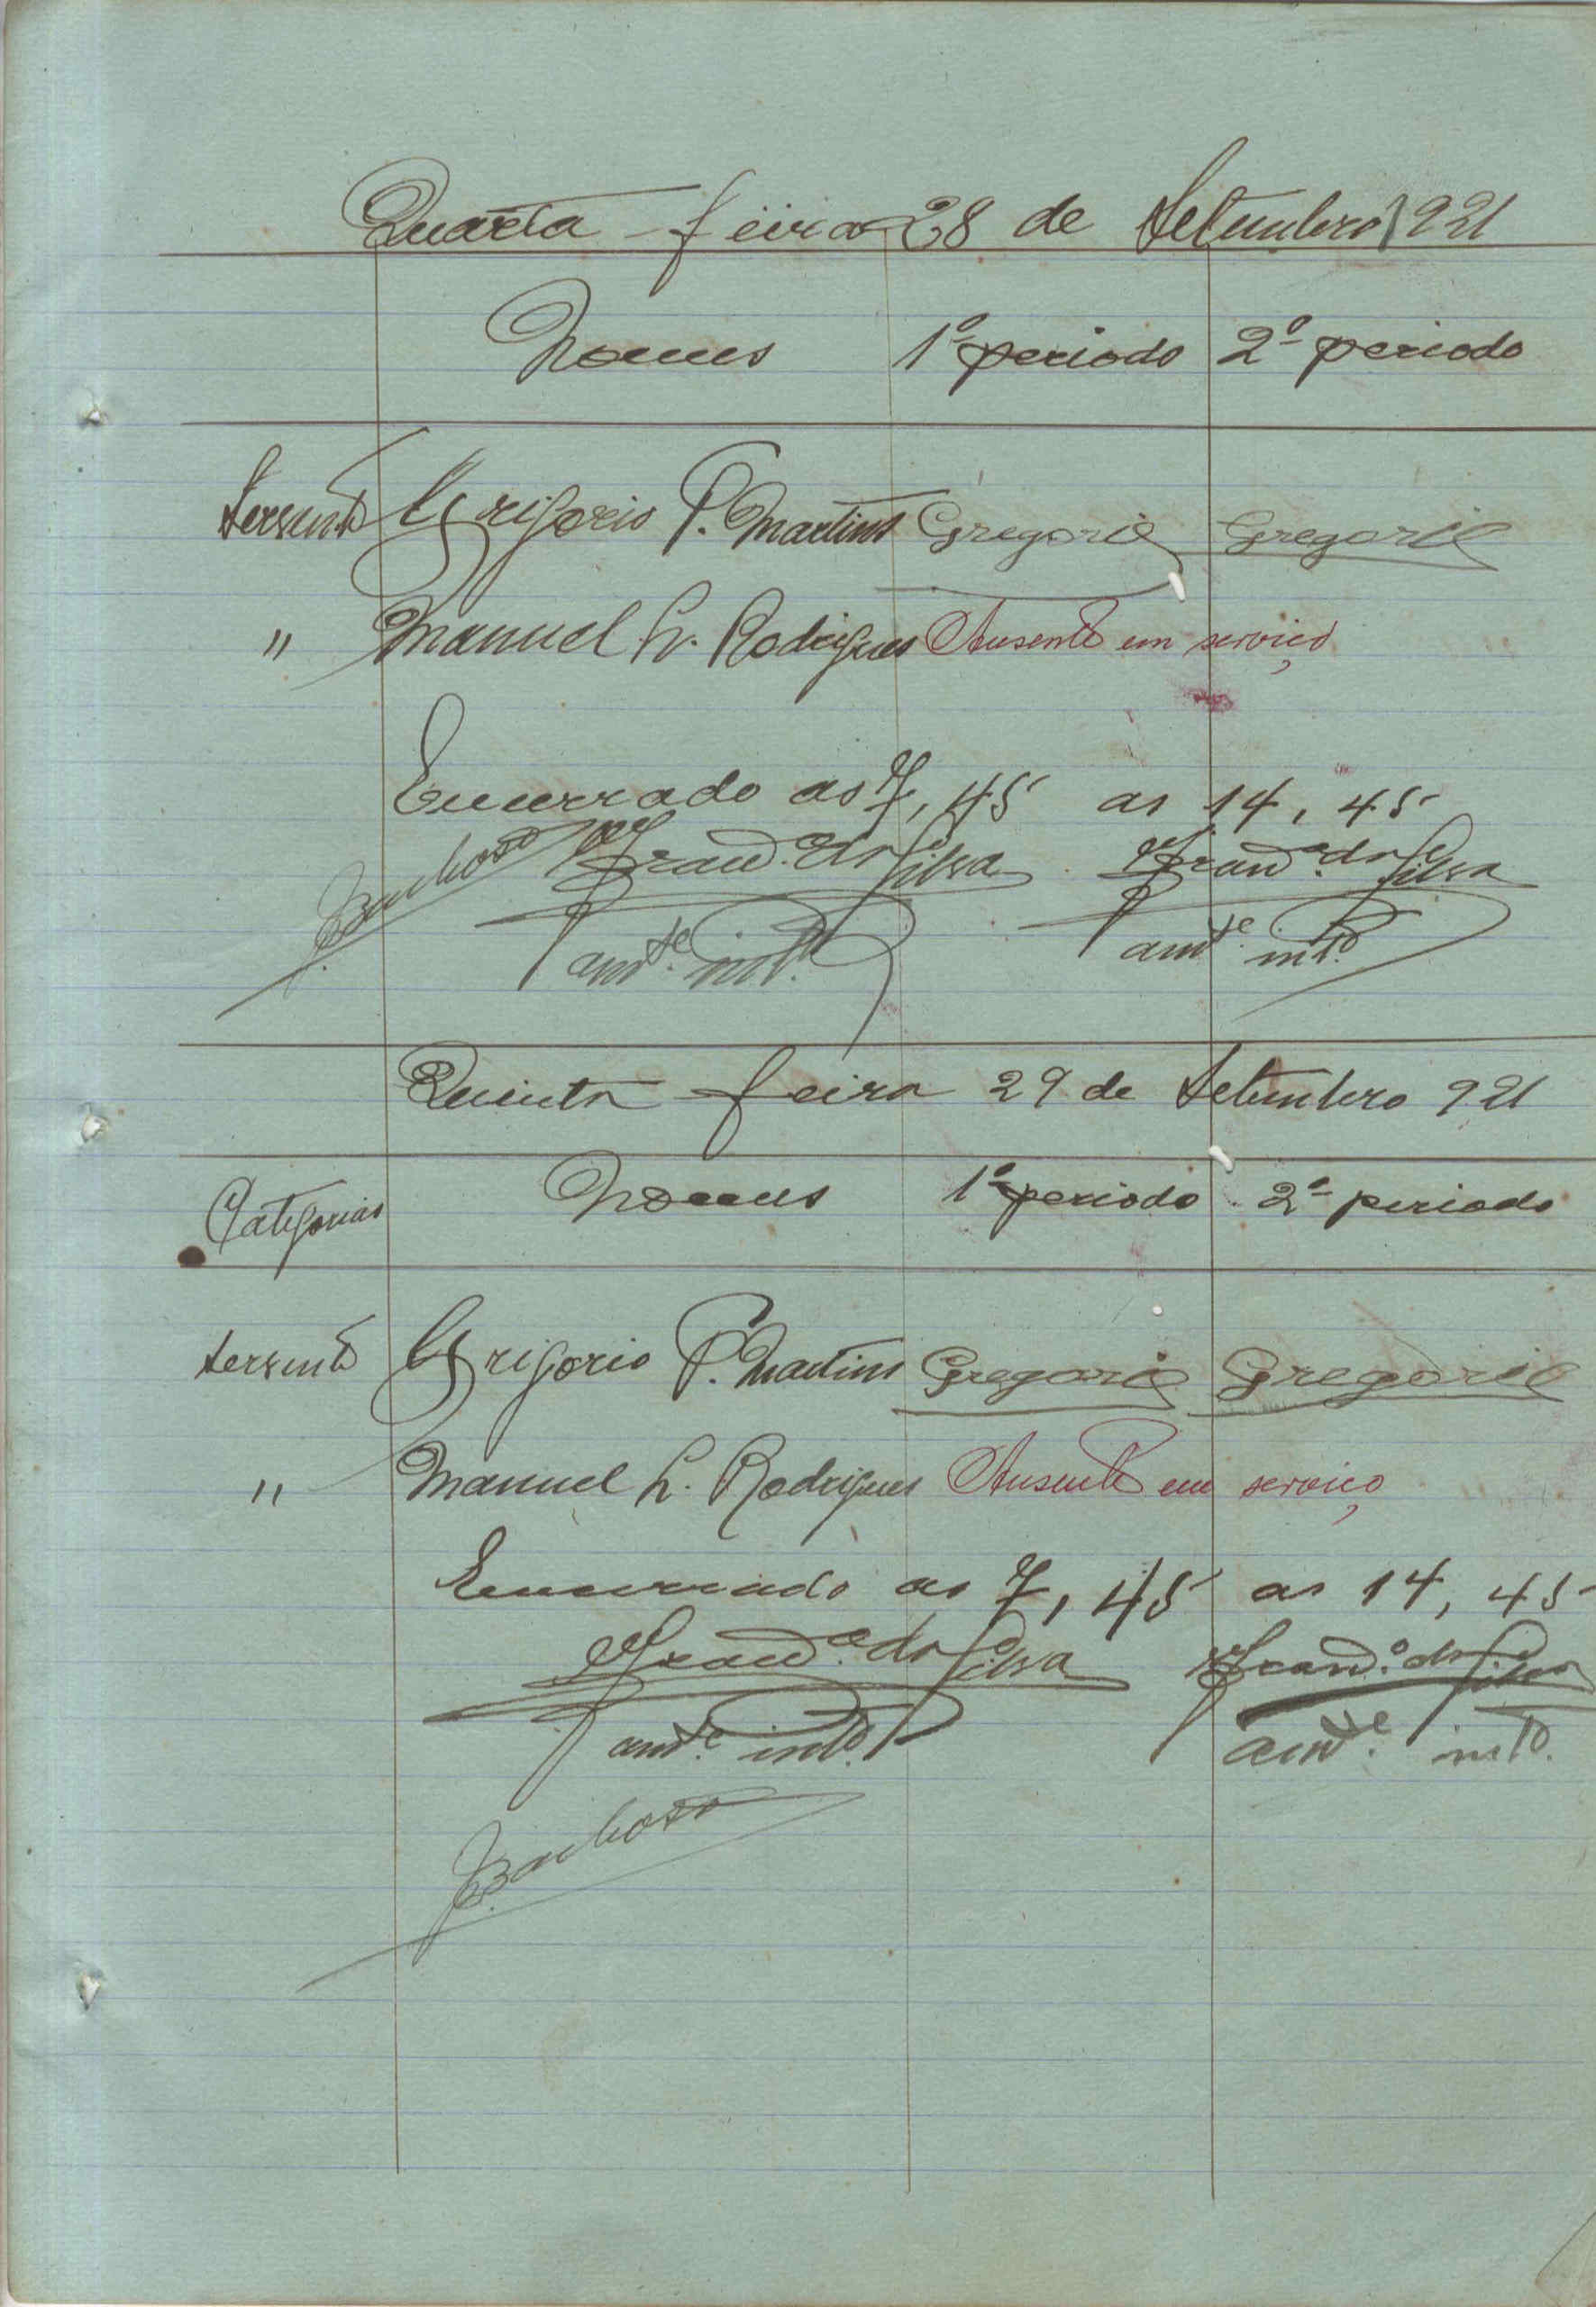 Quarta feira 28 de Setembro 1921
Nomes 1º periodo 2º periodo
Servente Grigorio P. Martins Gregorio Gregorio
" Manuel L. Rodrigues Ausente em serviço
Encerrado as 7,45 as 14,45
Barbosa Franc.º da Silva Franc.º da Silva
intº. intº.
Quinta feira 29 de Setembro 921
Categorias Nomes 1º periodo 2º periodo
Servente Grigorio P. Martins Gregorio Gregorio
" Manuel L. Rodrigues Ausente em serviço
Encerrado as 7,45 as 14,45
Franc.º da Silva Franc.º da Silva
intº. intº.
Barbosa